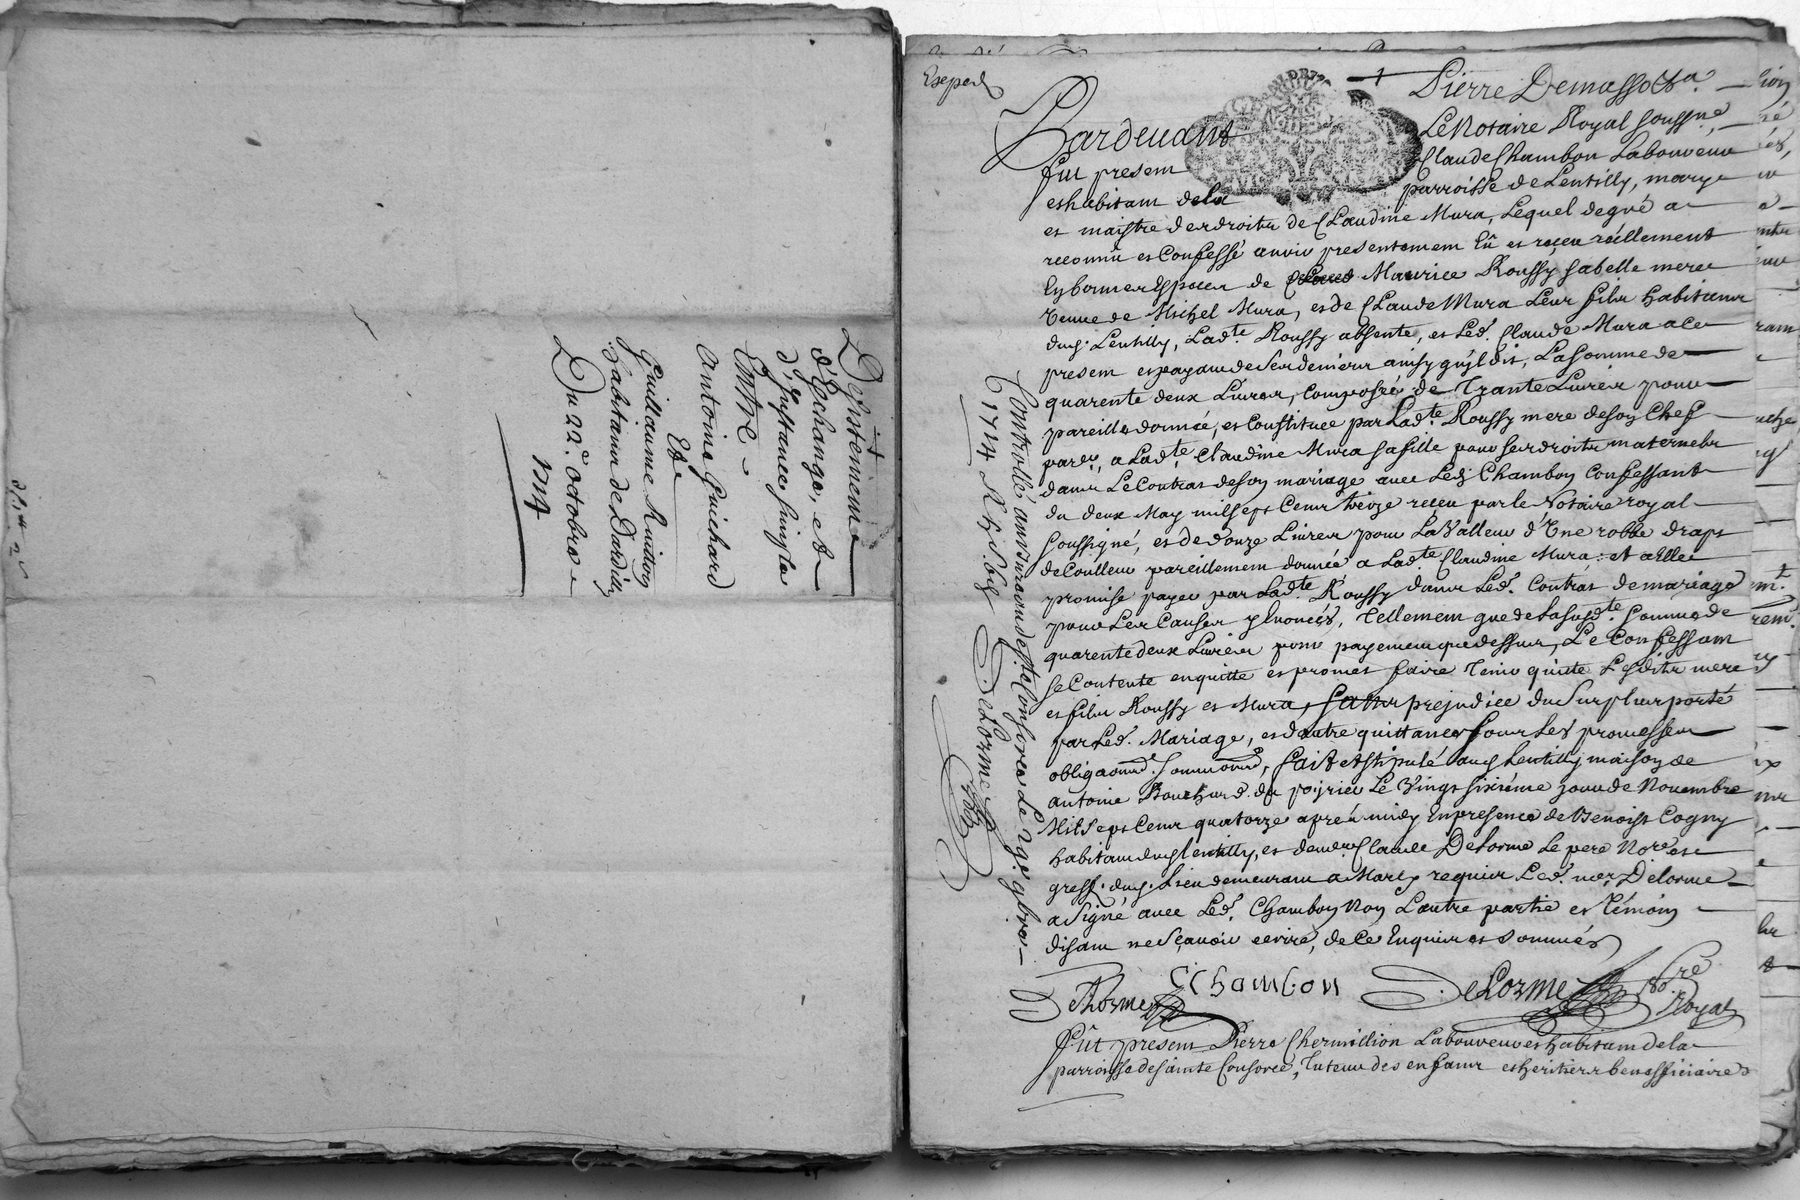 Desistement
d'Echange, et
d'Instance simple
Entre
Antoine Guichard
Et
Guillaume
habitans de Dardilly
Du 22e. octobre
1714
Exped
Pierre
Pardevant Le Notaire Royal soussne.
fut present Claude Chambon Laboureur
et habitant dela parroisse de Lentilly, mary
et maistre des droits de Claudine Mura, Lequel de gré a
reconnu et Confessé avoir presentement Eû et reçeu réellement
de Maurice Roussy mere
veuve de Michel Mura, et de Claude Mura Leur fils habitans
dud. Lentilly, Ladte. Roussy absente, et Led. Claude Mura a ce
present et payant de ses deniers ainsy qu'il dit, La somme de
quarente deux Livres, Composée de Trante Livres pour
pareille donnée, et Constituée par Ladte. Roussy mere de son Chef
a Ladte. Claudine Mura sa fille pour ses droits maternels
dans Le Contrat de son mariage avec Led. Chambon Confessant
du deux May mil sept Cent treize reçeu par le Notaire royal
soussigné, et de douze Livres pour La valleur d'Une robbe draps
de Coulleur pareillement donnée a Ladte. Claudine Mura: et a Elle
promise payer par Ladte. Roussy dans Led. Contrat de mariage
pour Les Causes y Enoncés, Tellement que de La susdte. somme de
quarente deux Livres pour payement que dessus, Le Confessant
se Contente en quitte et promet faire Tenir quitte Lesdits mere
et fils Roussy et Mura, sans prejudice du surplus porté
par Led. Mariage, et d'autre quittance sous Les promesses
fait et stipulé aud. Lentilly maison de
antoine Bouchard du poirier Le Vingt sixiéme jour de Novembre
Mil sept Cent quatorze aprés midy En presence de Benoist Cogny
habitant dud Lentilly, et de Claude Delorme Le pere Nore. et
greff. dud. Lieu demeurant a Marcy requis Led. Delorme
a signé avec Led. Chambon Non L'autre partie et Témoin
disant ne Sçavoir ecrire, de Ce Enquis et sommés
DeLorme CChambon DeLorme Nore. Royal
Fût present Pierre Chermillion Laboureur et habitant dela
parroisse de sainte Consorce, Tuteur des enfans et heritiers benefficiaires
1714 DeLorme